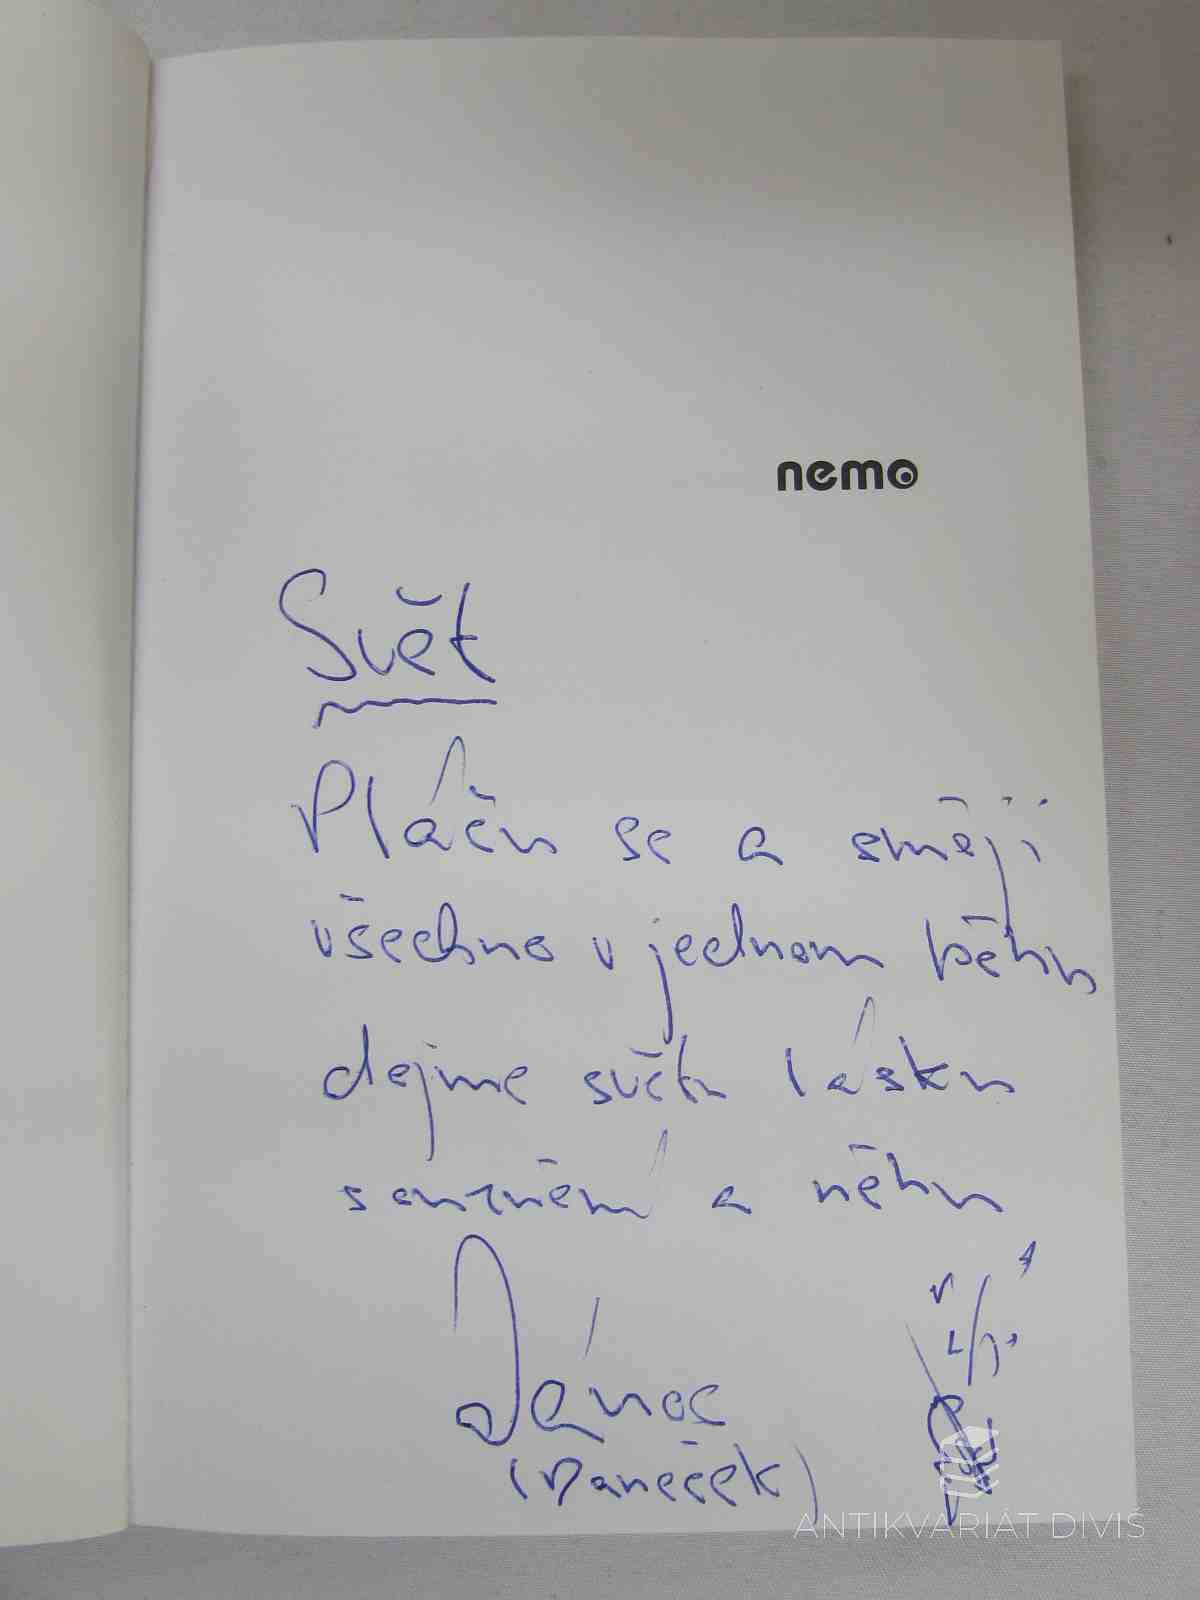 nemo
Svět
Pláču se a směji
všechno v jednom běhu
dejme světu lásku
souznění a něhu
János
(Vaneček)
ANTIKVARIÁT DIVIŠ